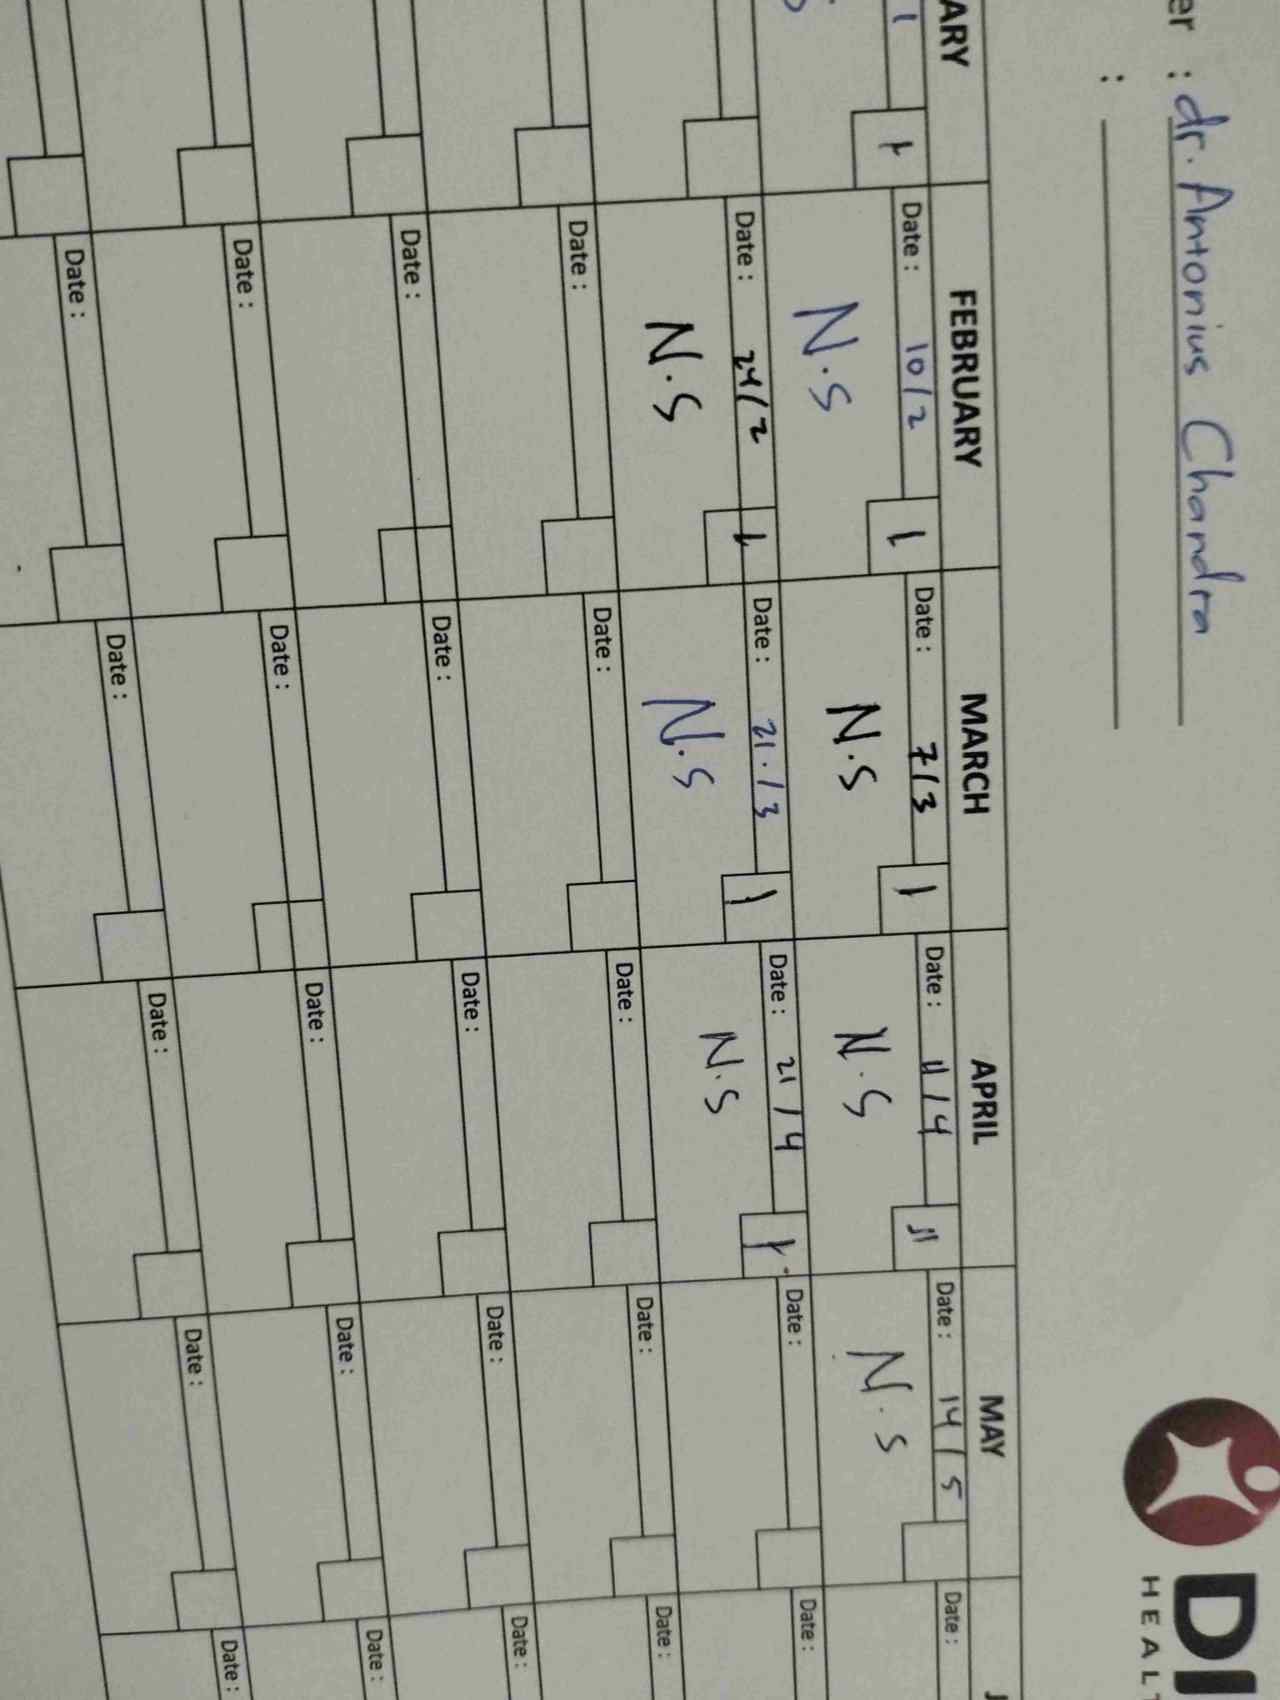 er : dr. Antonius Chandra
:
DI
HEALT
ARY FEBRUARY MARCH APRIL MAY J
1 1
Date : 10/2 1
N.S
Date : 7/3 1
N.S
Date : 11/4 11
N.S
Date : 14/5
N.S
Date :
Date : 24/2 1
N.S
Date : 21./3 1
N.S
Date : 21/4 1
N.S
Date :
Date :
Date : Date : Date : Date : Date :
Date : Date : Date : Date : Date :
Date : Date : Date : Date : Date :
Date : Date : Date : Date : Date :